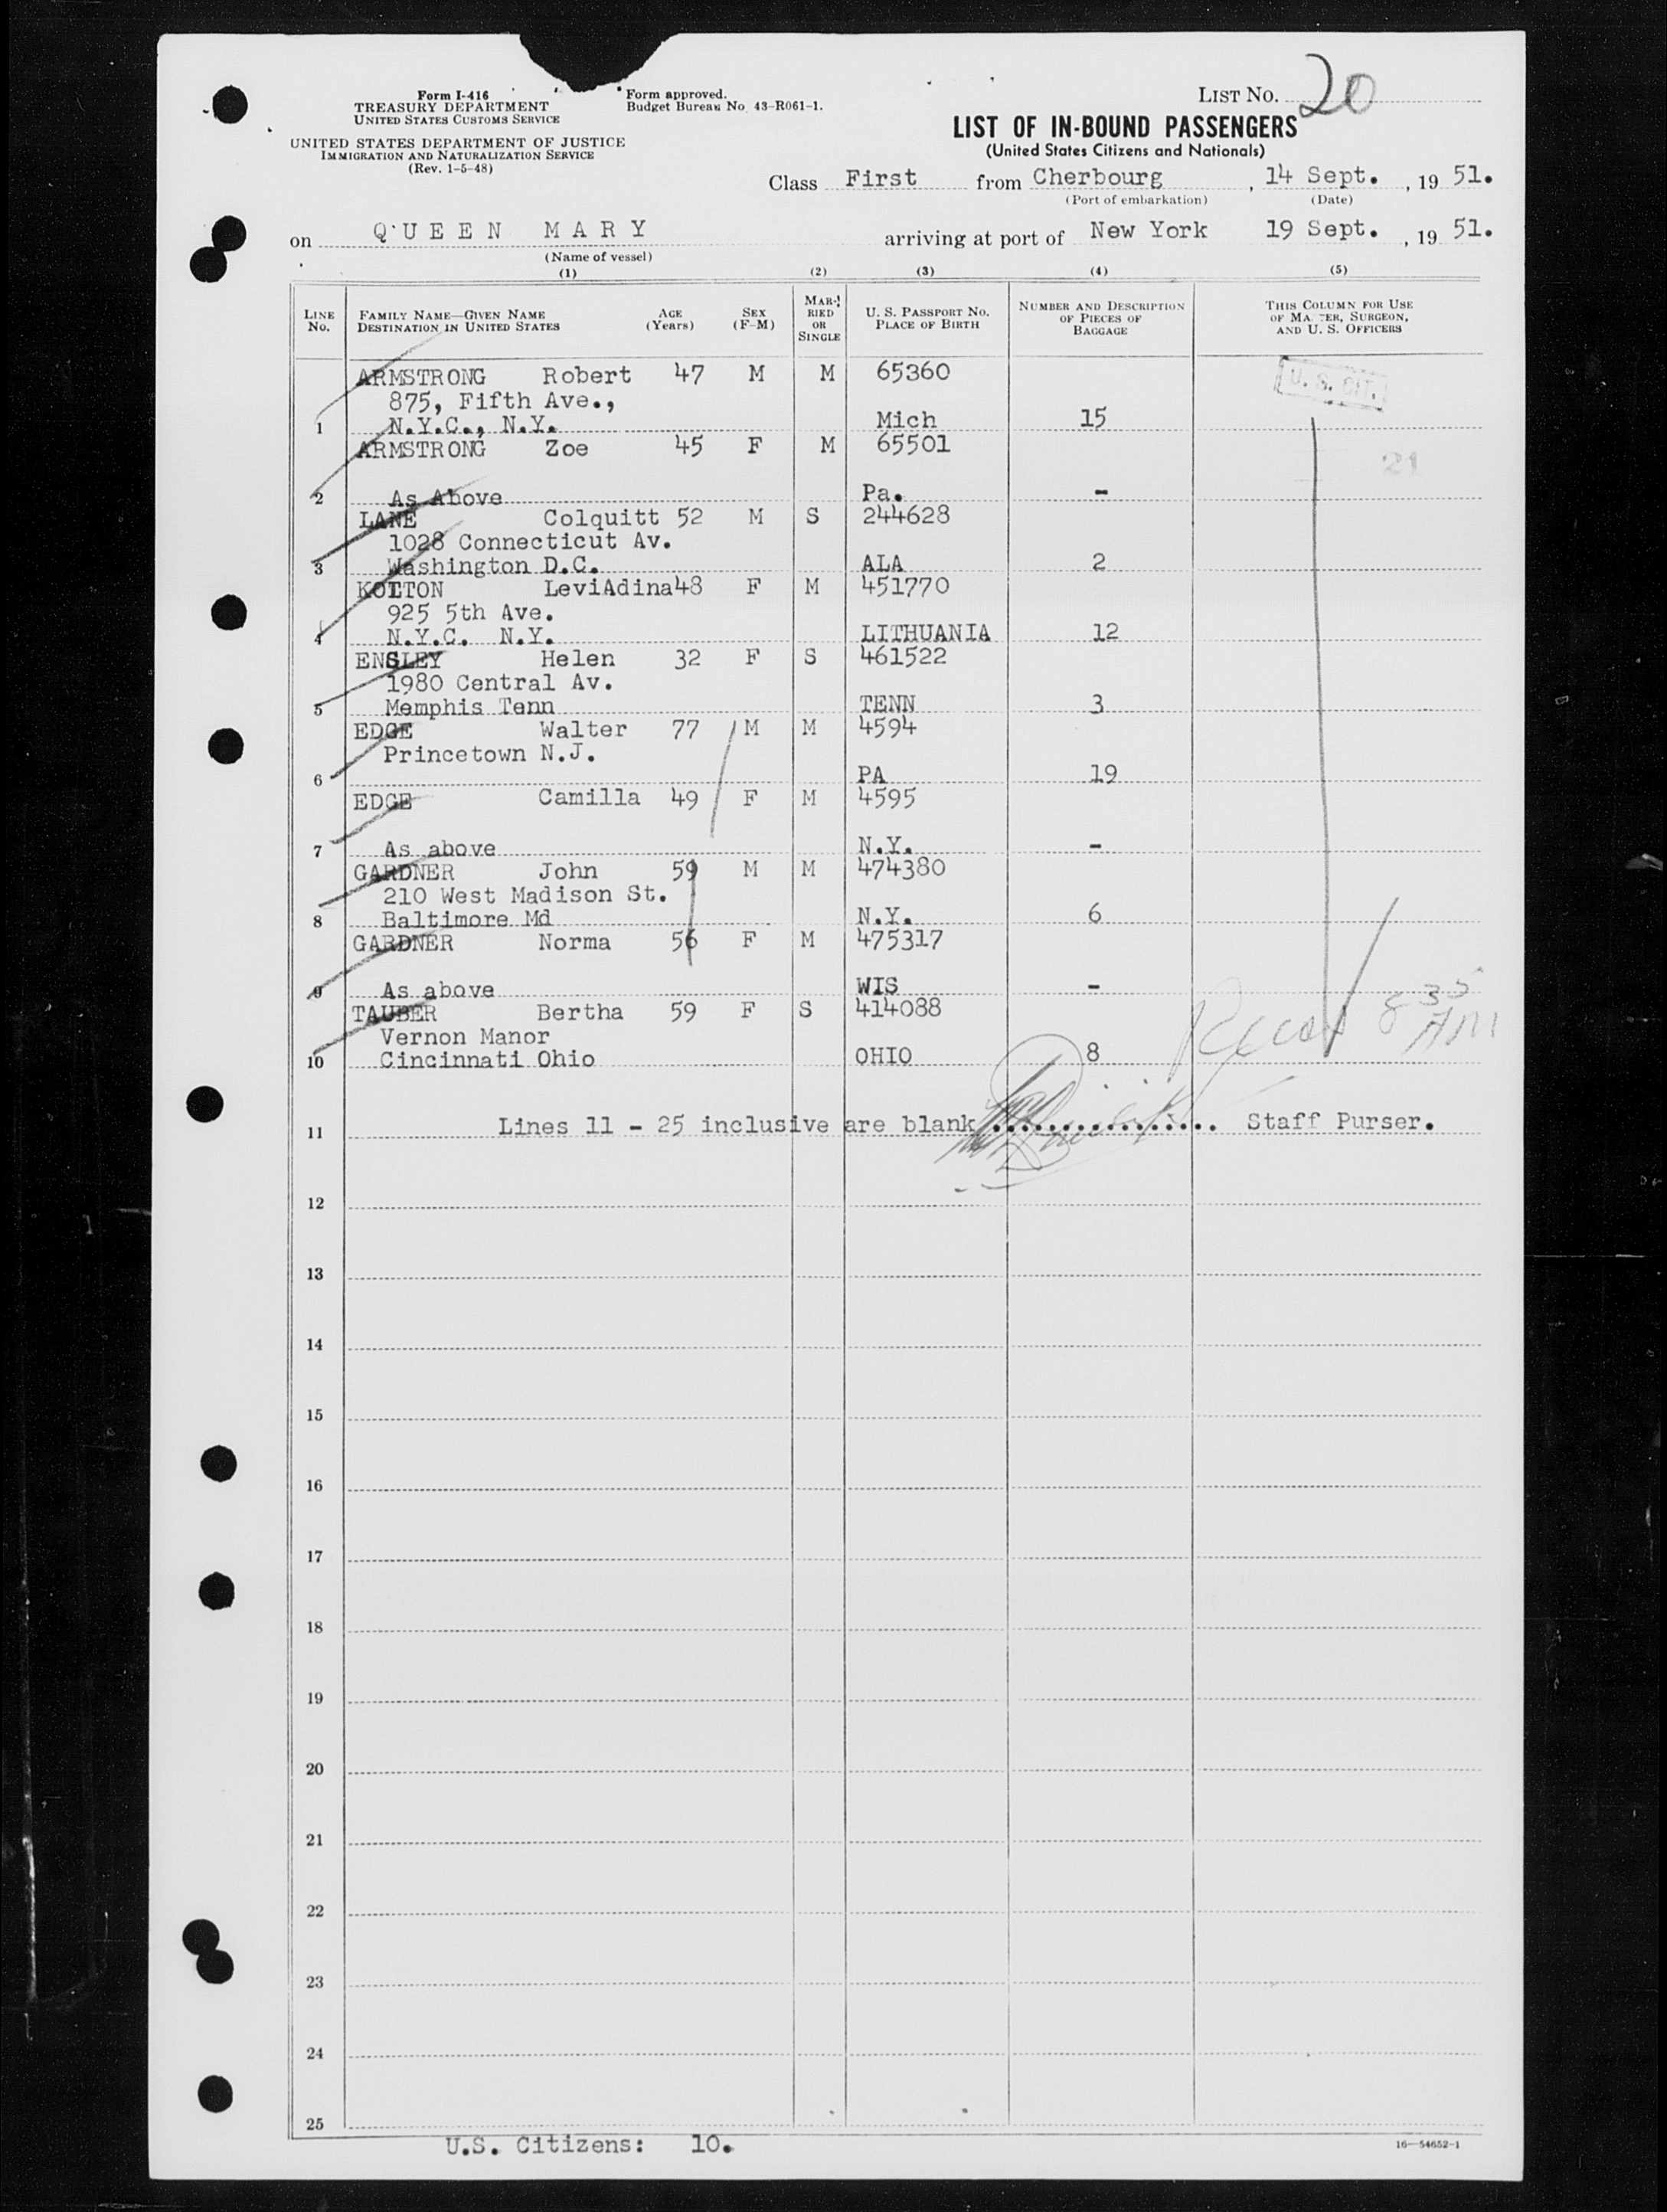 Form I-416
TREASURY DEPARTMENT
UNITED STATES CUSTOMS SERVICE
UNITED STATES DEPARTMENT OF JUSTICE
IMMIGRATION AND NATURALIZATION SERVICE
(Rev. 1-5-48)
Form approved.
Budget Bureau No. 43-R061-1.
LIST NO. 20
LIST OF IN-BOUND PASSENGERS
(United States Citizens and Nationals)
Class First from Cherbourg, 14 Sept., 19 51.
(Port of embarkation) (Date)
on QUEEN MARY arriving at port of New York 19 Sept., 19 51.
(Name of vessel)
(1) (2) (3) (4) (5)
LINE No. FAMILY NAME—GIVEN NAME DESTINATION IN UNITED STATES AGE (Years) SEX (F-M) MARRIED OR SINGLE U. S. PASSPORT NO. PLACE OF BIRTH NUMBER AND DESCRIPTION OF PIECES OF BAGGAGE THIS COLUMN FOR USE OF MASTER, SURGEON, AND U. S. OFFICERS
ARMSTRONG Robert 47 M M 65360 U. S. CIT.
875, Fifth Ave.,
1 N.Y.C., N.Y. Mich 15
ARMSTRONG Zoe 45 F M 65501
21
2 As Above Pa. -
LANE Colquitt 52 M S 244628
1028 Connecticut Av.
3 Washington D.C. ALA 2
KOTTON LeviAdina48 F M 451770
925 5th Ave.
4 N.Y.C. N.Y. LITHUANIA 12
ENSLEY Helen 32 F S 461522
1980 Central Av.
5 Memphis Tenn TENN 3
EDGE Walter 77 M M 4594
Princetown N.J.
6 PA 19
EDGE Camilla 49 F M 4595
7 As above N.Y. -
GARDNER John 59 M M 474380
210 West Madison St.
8 Baltimore Md N.Y. 6
GARDNER Norma 56 F M 475317
9 As above WIS -
TAUBER Bertha 59 F S 414088
Vernon Manor 8 35 AM
10 Cincinnati Ohio OHIO 8
11 Lines 11 - 25 inclusive are blank ................ Staff Purser.
12
13
14
15
16
17
18
19
20
21
22
23
24
25
U.S. Citizens: 10.
16—54652-1